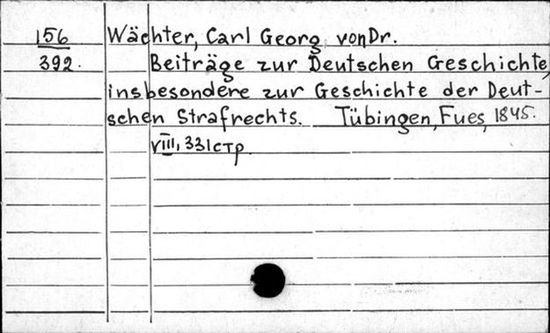 156 Wächter, Carl Georg von Dr.
392. Beiträge zur Deutschen Geschichte,
insbesondere zur Geschichte der Deut-
schen Strafrechts. Tübingen, Fues, 1845.
VIII, 331 стр.